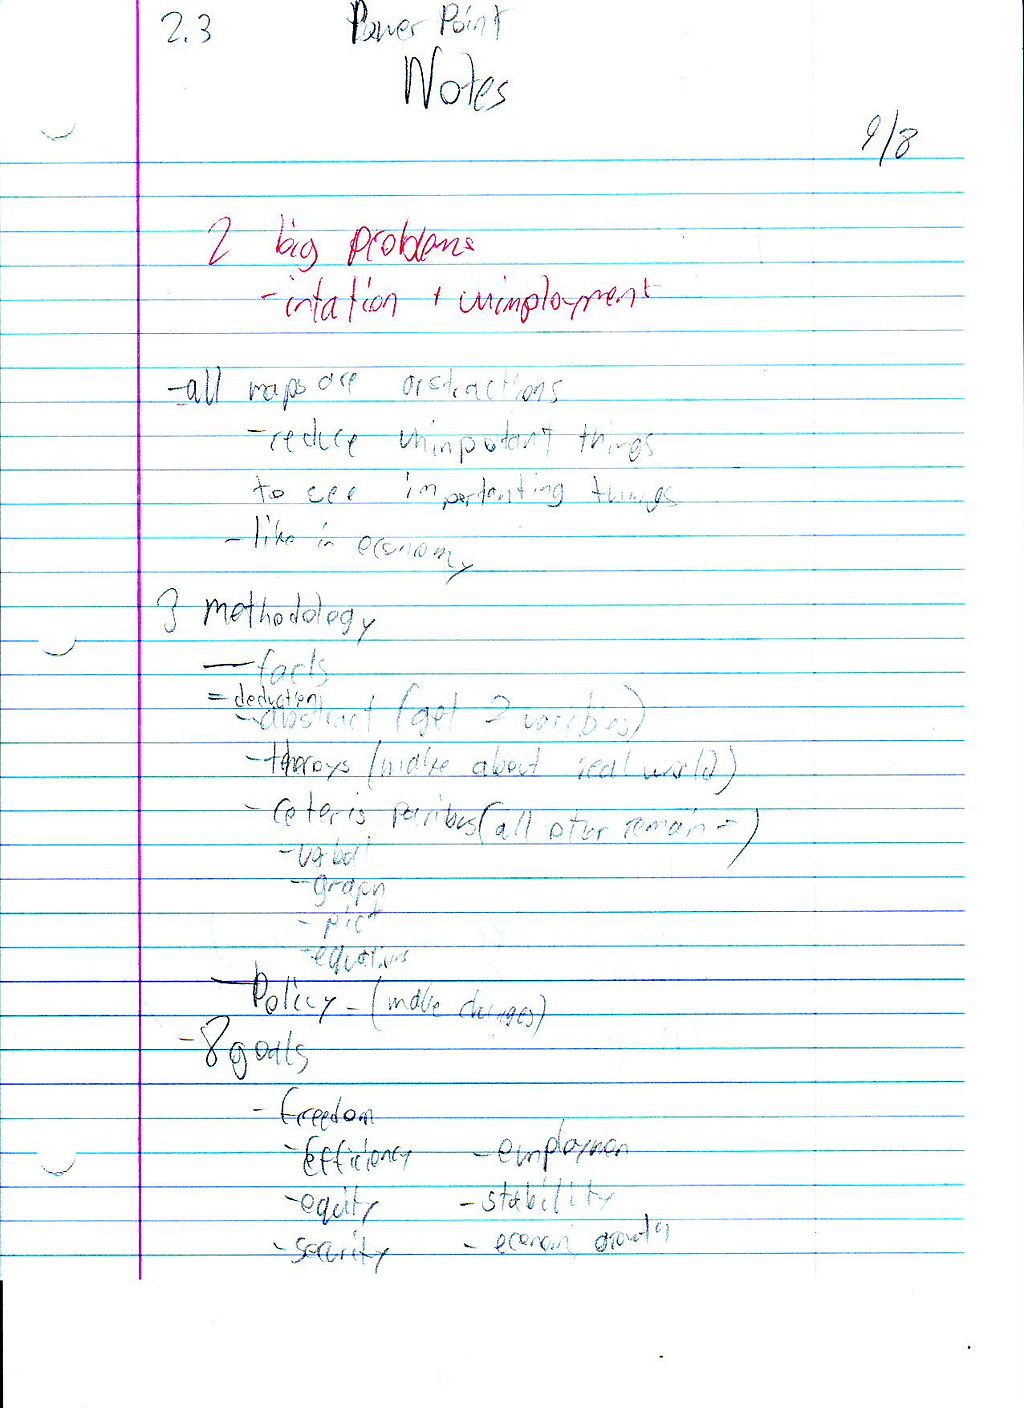 2.3 Power Point
Notes
9/8
2 big problems
- intation + unimployment
- all maps are abstractions
- reduce unimpotant things
to see importanting things
- like in economy
3 methodology
- facts
= deduction
- abstract (get 2 varibles)
- (make about real world)
- ceteris paribus (all other remain =)
- verbal
- graph
- pict
- equations
- Policy - (make changes)
- 8 goals
- freedom
- Efficiency - employmen
- equity - stability
- security - economic growth